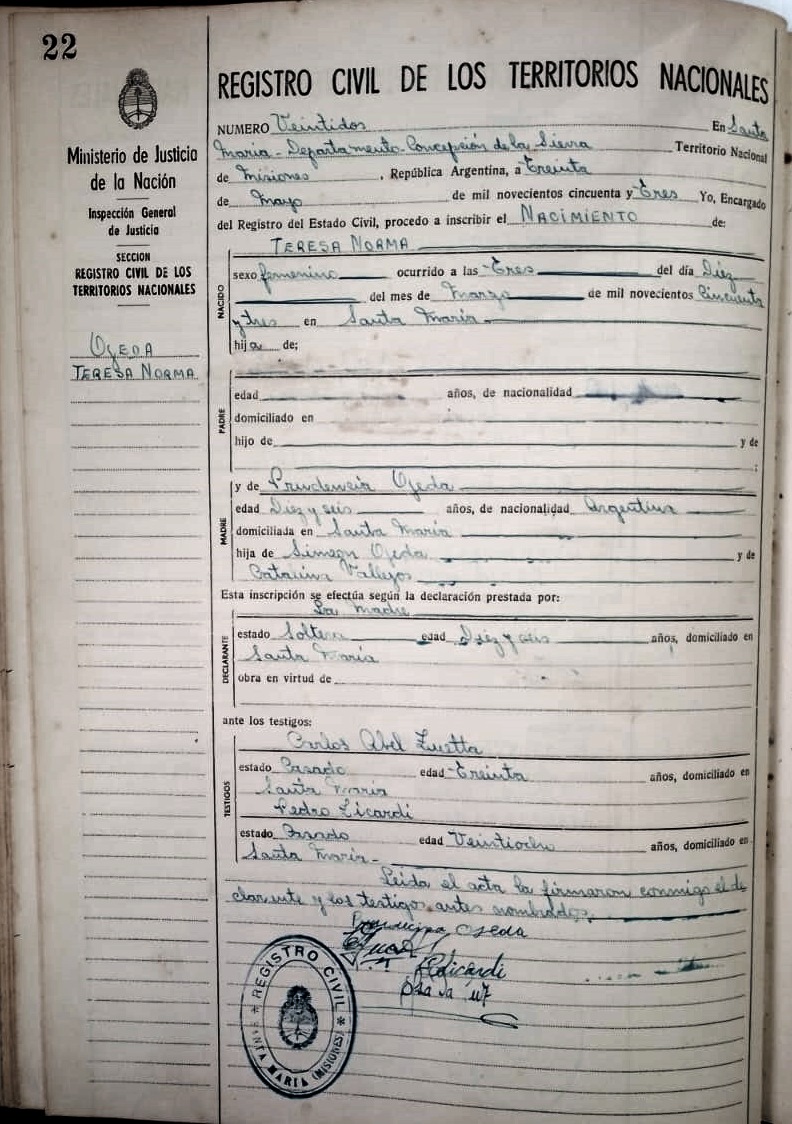 22
Ministerio de Justicia
de la Nación
Inspección General
de Justicia
SECCION
REGISTRO CIVIL DE LOS
TERRITORIOS NACIONALES
OJEDA
TERESA NORMA
REGISTRO CIVIL DE LOS TERRITORIOS NACIONALES
NUMERO Veintidos En Santa
Maria - Departamento Concepción de la Sierra Territorio Nacional
de Misiones, República Argentina, a Treinta
de Mayo de mil novecientos cincuenta y Tres Yo, Encargado
del Registro del Estado Civil, procedo a inscribir el NACIMIENTO de:
NACIDO
TERESA NORMA
sexo femenino ocurrido a las Tres del día Diez
del mes de Marzo de mil novecientos Cincuenta
y tres en Santa María
hija de;
PADRE
edad años, de nacionalidad
domiciliado en
hijo de y de
;
MADRE
y de Prudencia Ojeda
edad Diez y seis años, de nacionalidad Argentina
domiciliada en Santa María
hija de Simeon Ojeda y de
Catalina Vallejos
Esta inscripción se efectúa según la declaración prestada por:
DECLARANTE
La Madre
estado Soltera edad Diez y seis años, domiciliado en
Santa María
obra en virtud de
ante los testigos:
TESTIGOS
Carlos Abel Zuetta
estado Casado edad Treinta años, domiciliado en
Santa María
Pedro Licardi
estado Casado edad Veintiocho años, domiciliado en
Santa María -
Leída el acta la firmaron conmigo el de
clarante y los testigos antes nombrados.
oseda
REGISTRO CIVIL
SANTA MARIA (MISIONES)